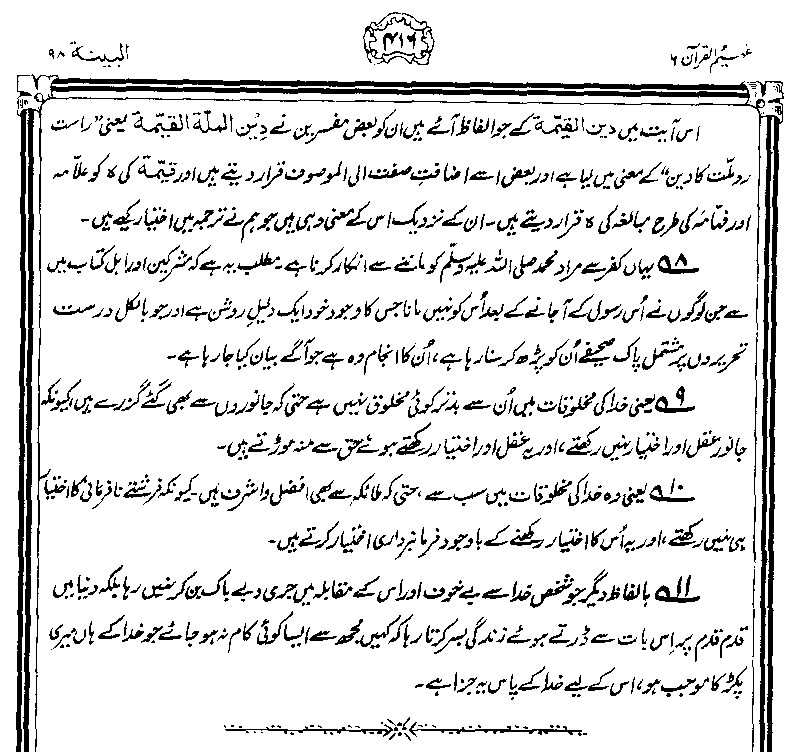 تفہیم القرآن ۶
۴۱۶
البینۃ ۹۸
اس آیت میں دین القیّمۃ کے جو الفاظ آئے ہیں ان کو بعض مفسرین نے دِیْن الملّۃ القیّمۃ یعنی ”راست
رو ملّت کا دین“ کے معنی میں لیا ہے اور بعض اسے اضافتِ صفت الی الموصوف قرار دیتے ہیں اور قیّمۃ کی ہ کو علّامہ
اور فہّامہ کی طرح مبالغہ کی ہ قرار دیتے ہیں۔ ان کے نزدیک اس کے معنی وہی ہیں جو ہم نے ترجمہ میں اختیار کیے ہیں۔
۸ یہاں کفر سے مراد محمد صلی اللہ علیہ وسلّم کو ماننے سے انکار کرنا ہے۔ مطلب یہ ہے کہ مشرکین اور اہل کتاب میں
سے جن لوگوں نے اُس رسول کے آجانے کے بعد اُس کو نہیں مانا جس کا وجود خود ایک دلیلِ روشن ہے اور جو بالکل درست
تحریروں پر مشتمل پاک صحیفے اُن کو پڑھ کر سنا رہا ہے، اُن کا انجام وہ ہے جو آگے بیان کیا جا رہا ہے۔
۹ یعنی خدا کی مخلوقات میں اُن سے بدتر کوئی مخلوق نہیں ہے حتی کہ جانوروں سے بھی گئے گزرے ہیں، کیونکہ
جانور عقل اور اختیار نہیں رکھتے، اور یہ عقل اور اختیار رکھتے ہوئے حق سے منہ موڑتے ہیں۔
۱۰ یعنی وہ خدا کی مخلوقات میں سب سے، حتی کہ ملائکہ سے بھی افضل و اشرف ہیں۔ کیونکہ فرشتے نافرمانی کا اختیار
ہی نہیں رکھتے، اور یہ اُس کا اختیار رکھنے کے باوجود فرمانبرداری اختیار کرتے ہیں۔
۱۱ بالفاظ دیگر جو شخص خدا سے بے خوف اور اس کے مقابلہ میں جری و بے باک بن کر نہیں رہا بلکہ دنیا میں
قدم قدم پر اِس بات سے ڈرتے ہوئے زندگی بسر کرتا رہا کہ کہیں مجھ سے ایسا کوئی کام نہ ہو جائے جو خدا کے ہاں میری
پکڑ کا موجب ہو، اس کے لیے خدا کے پاس یہ جزا ہے۔